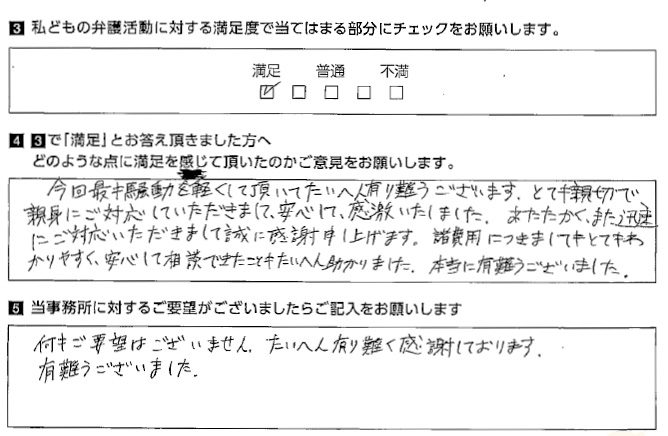 3 私どもの弁護活動に対する満足度で当てはまる部分にチェックをお願いします。
満足 普通 不満
4 3で「満足」とお答え頂きました方へ
どのような点に満足を感じて頂いたのかご意見をお願いします。
今回最も騒動を軽くして頂いてたいへん有り難うございます。とても親切で
親身にご対応していただきまして、安心して、感激いたしました。あたたかく、また迅速
にご対応いただきまして誠に感謝申し上げます。諸費用につきましてもとてもわ
かりやすく、安心して相談できたこともたいへん助かりました。本当に有難うございました。
5 当事務所に対するご要望がございましたらご記入をお願いします
何もご要望はございません。たいへん有り難く感謝しております。
有難うございました。